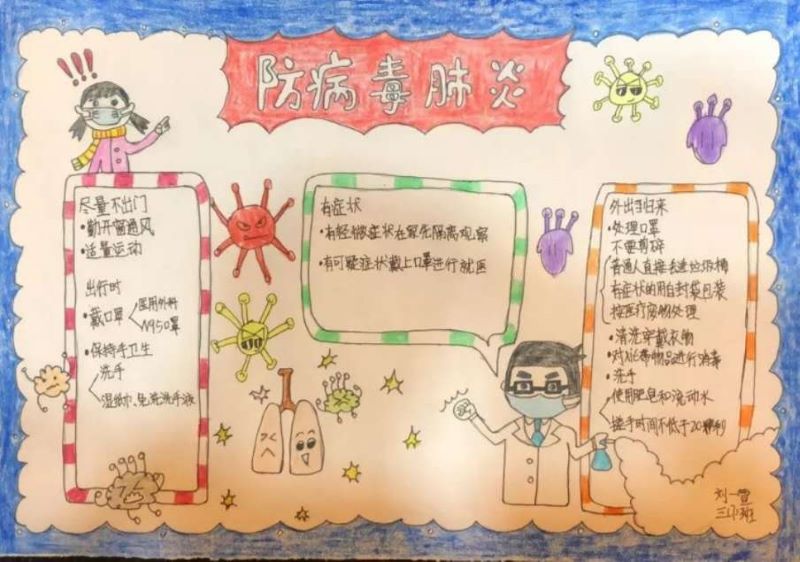 防病毒肺炎
!!!
尽量不出门
•勤开窗通风
•适量运动
出行时
•戴口罩
医用外科
N95口罩
•保持手卫生
洗手
湿纸巾、免洗洗手液
有症状
•有轻微症状在家先隔离观察
•有可疑症状戴上口罩进行就医
外出归来
•处理口罩
不要剪碎
普通人直接丢进垃圾桶
有症状的用自封袋包装
按医疗废物处理
•清洗穿戴衣物
物品进行消毒
•洗手
使用肥皂和流动水
搓手时间不低于20秒
刘一萱